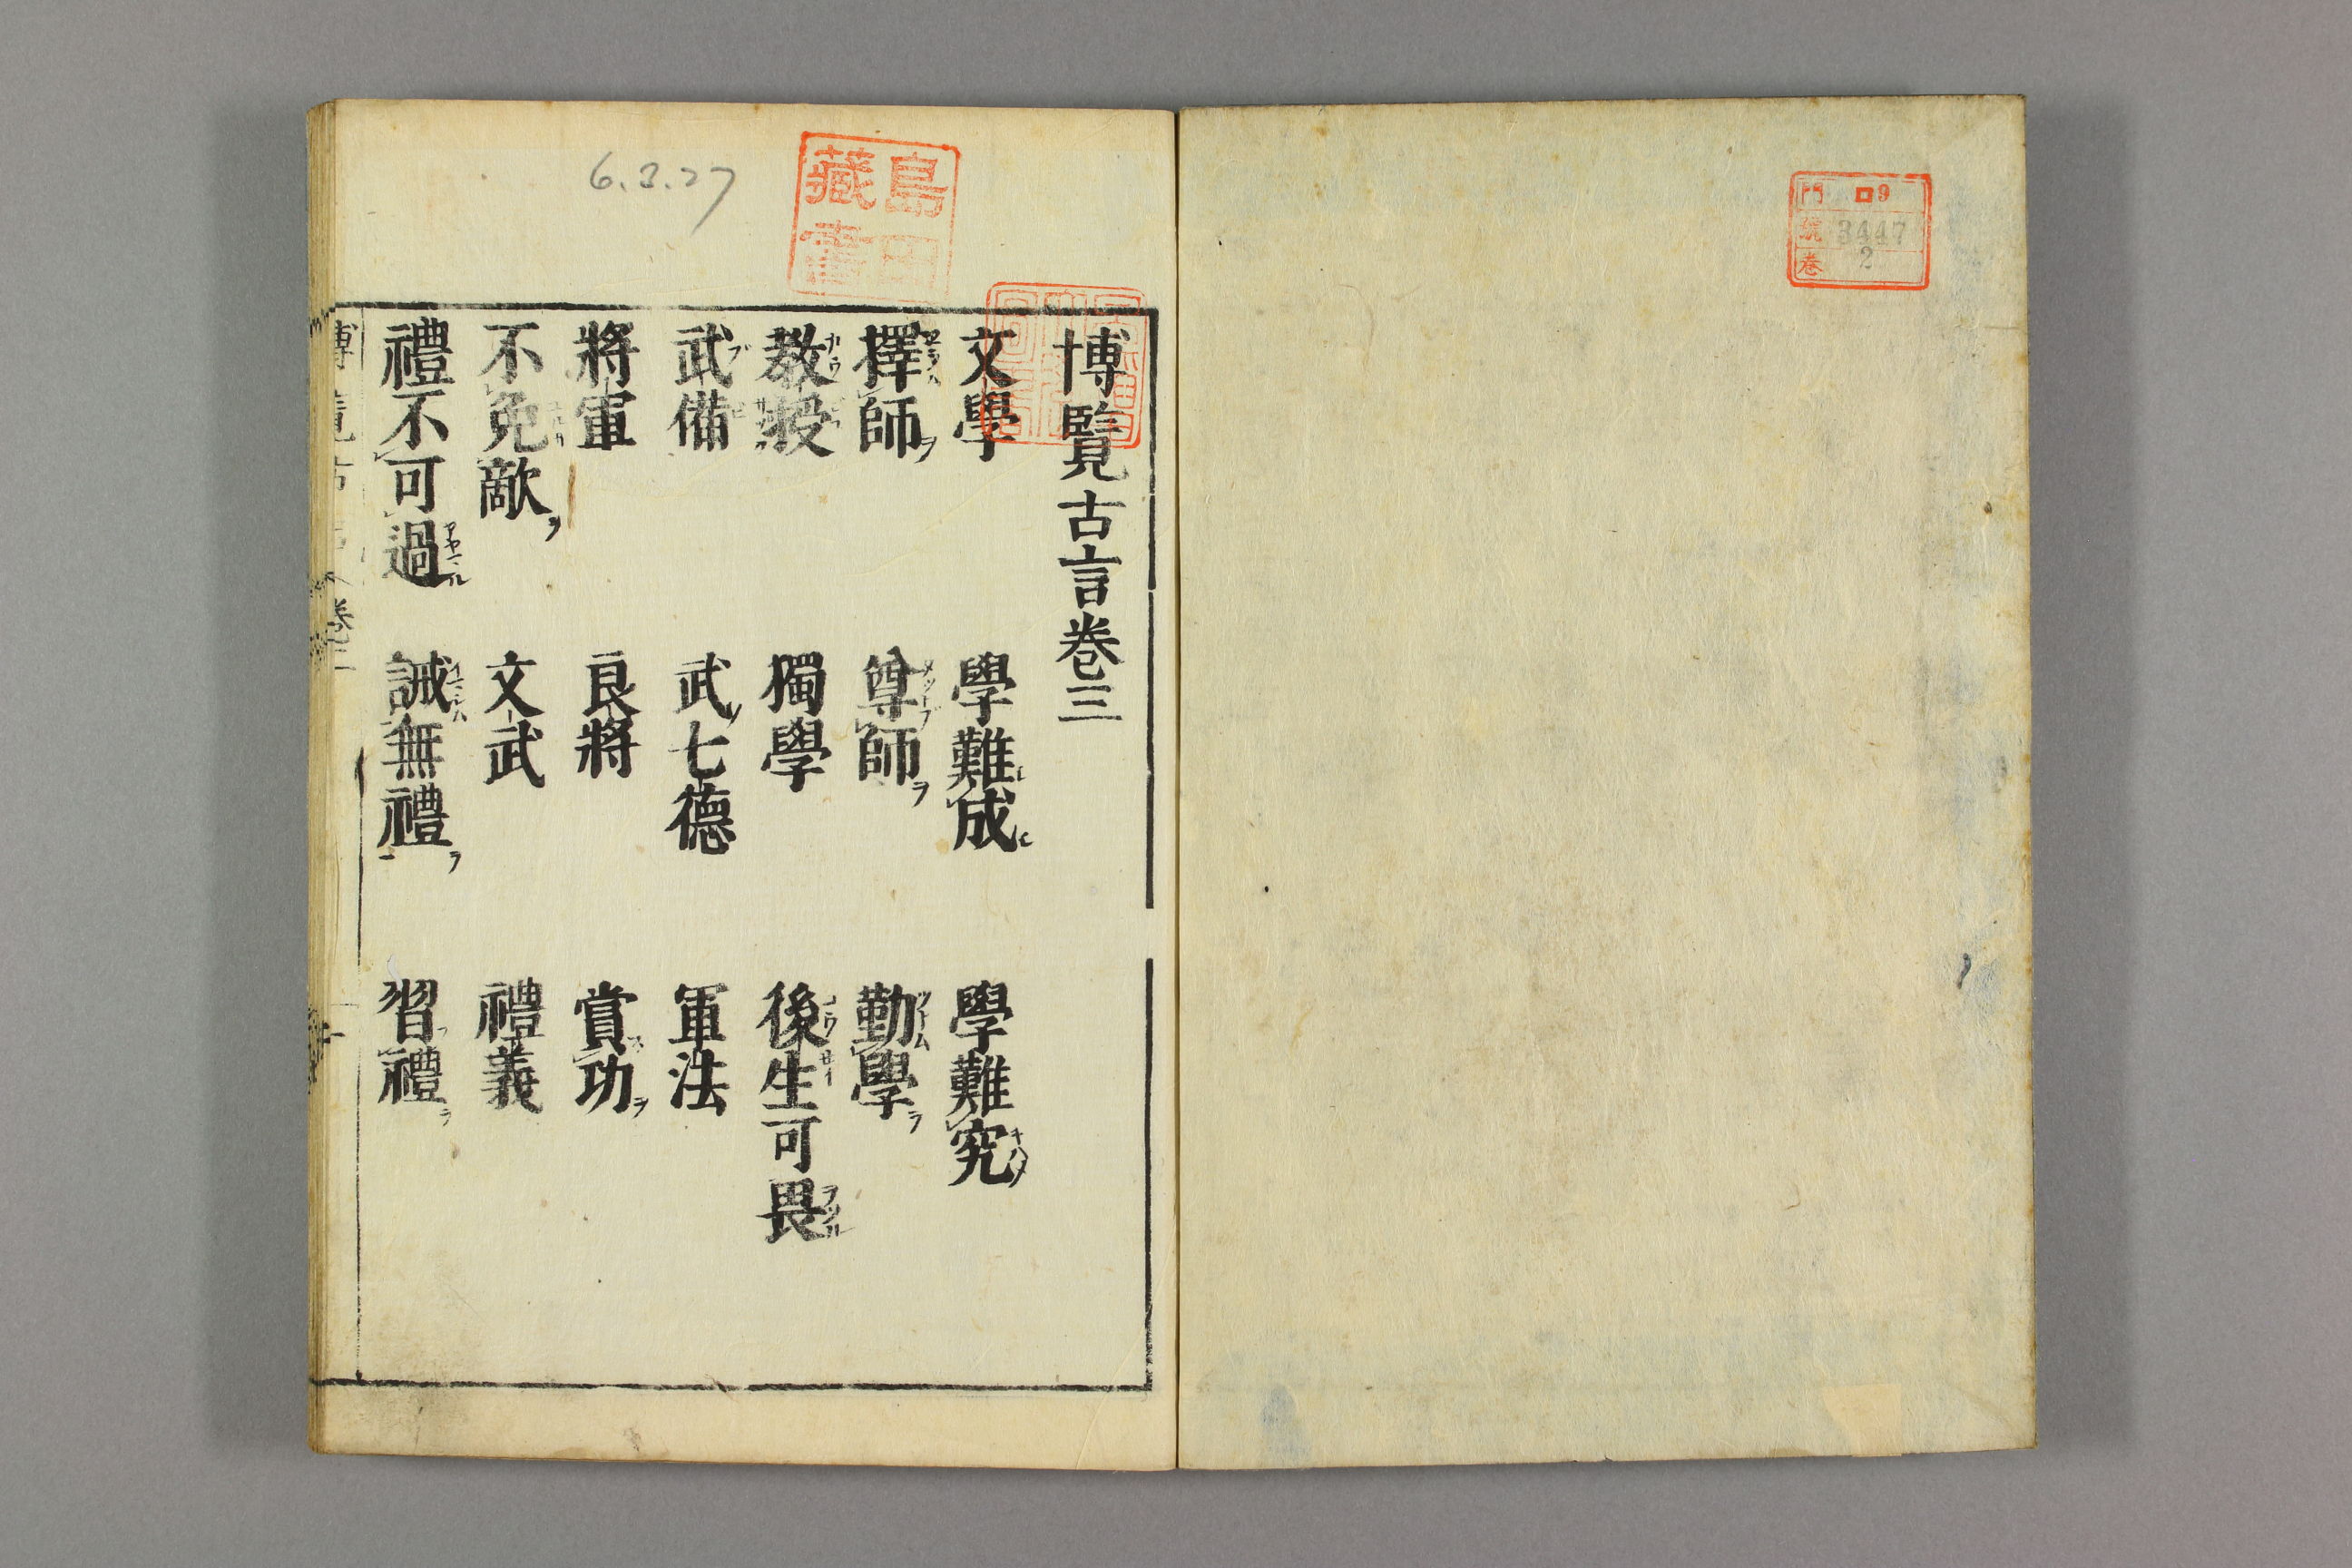 門 ロ9
號 3447
卷 2
6.3.27
島田
藏書
博覧古言巻三
文學 學難成 學難究
擇師ヲ 尊師ヲ 勤學ヲ
教授 獨學 後生可畏
武備 武ノ七德 軍法
將軍 良將 賞功ヲ
不免敵ヲ 文武 禮義
禮不可過 誡無禮ヲ 習禮ヲ